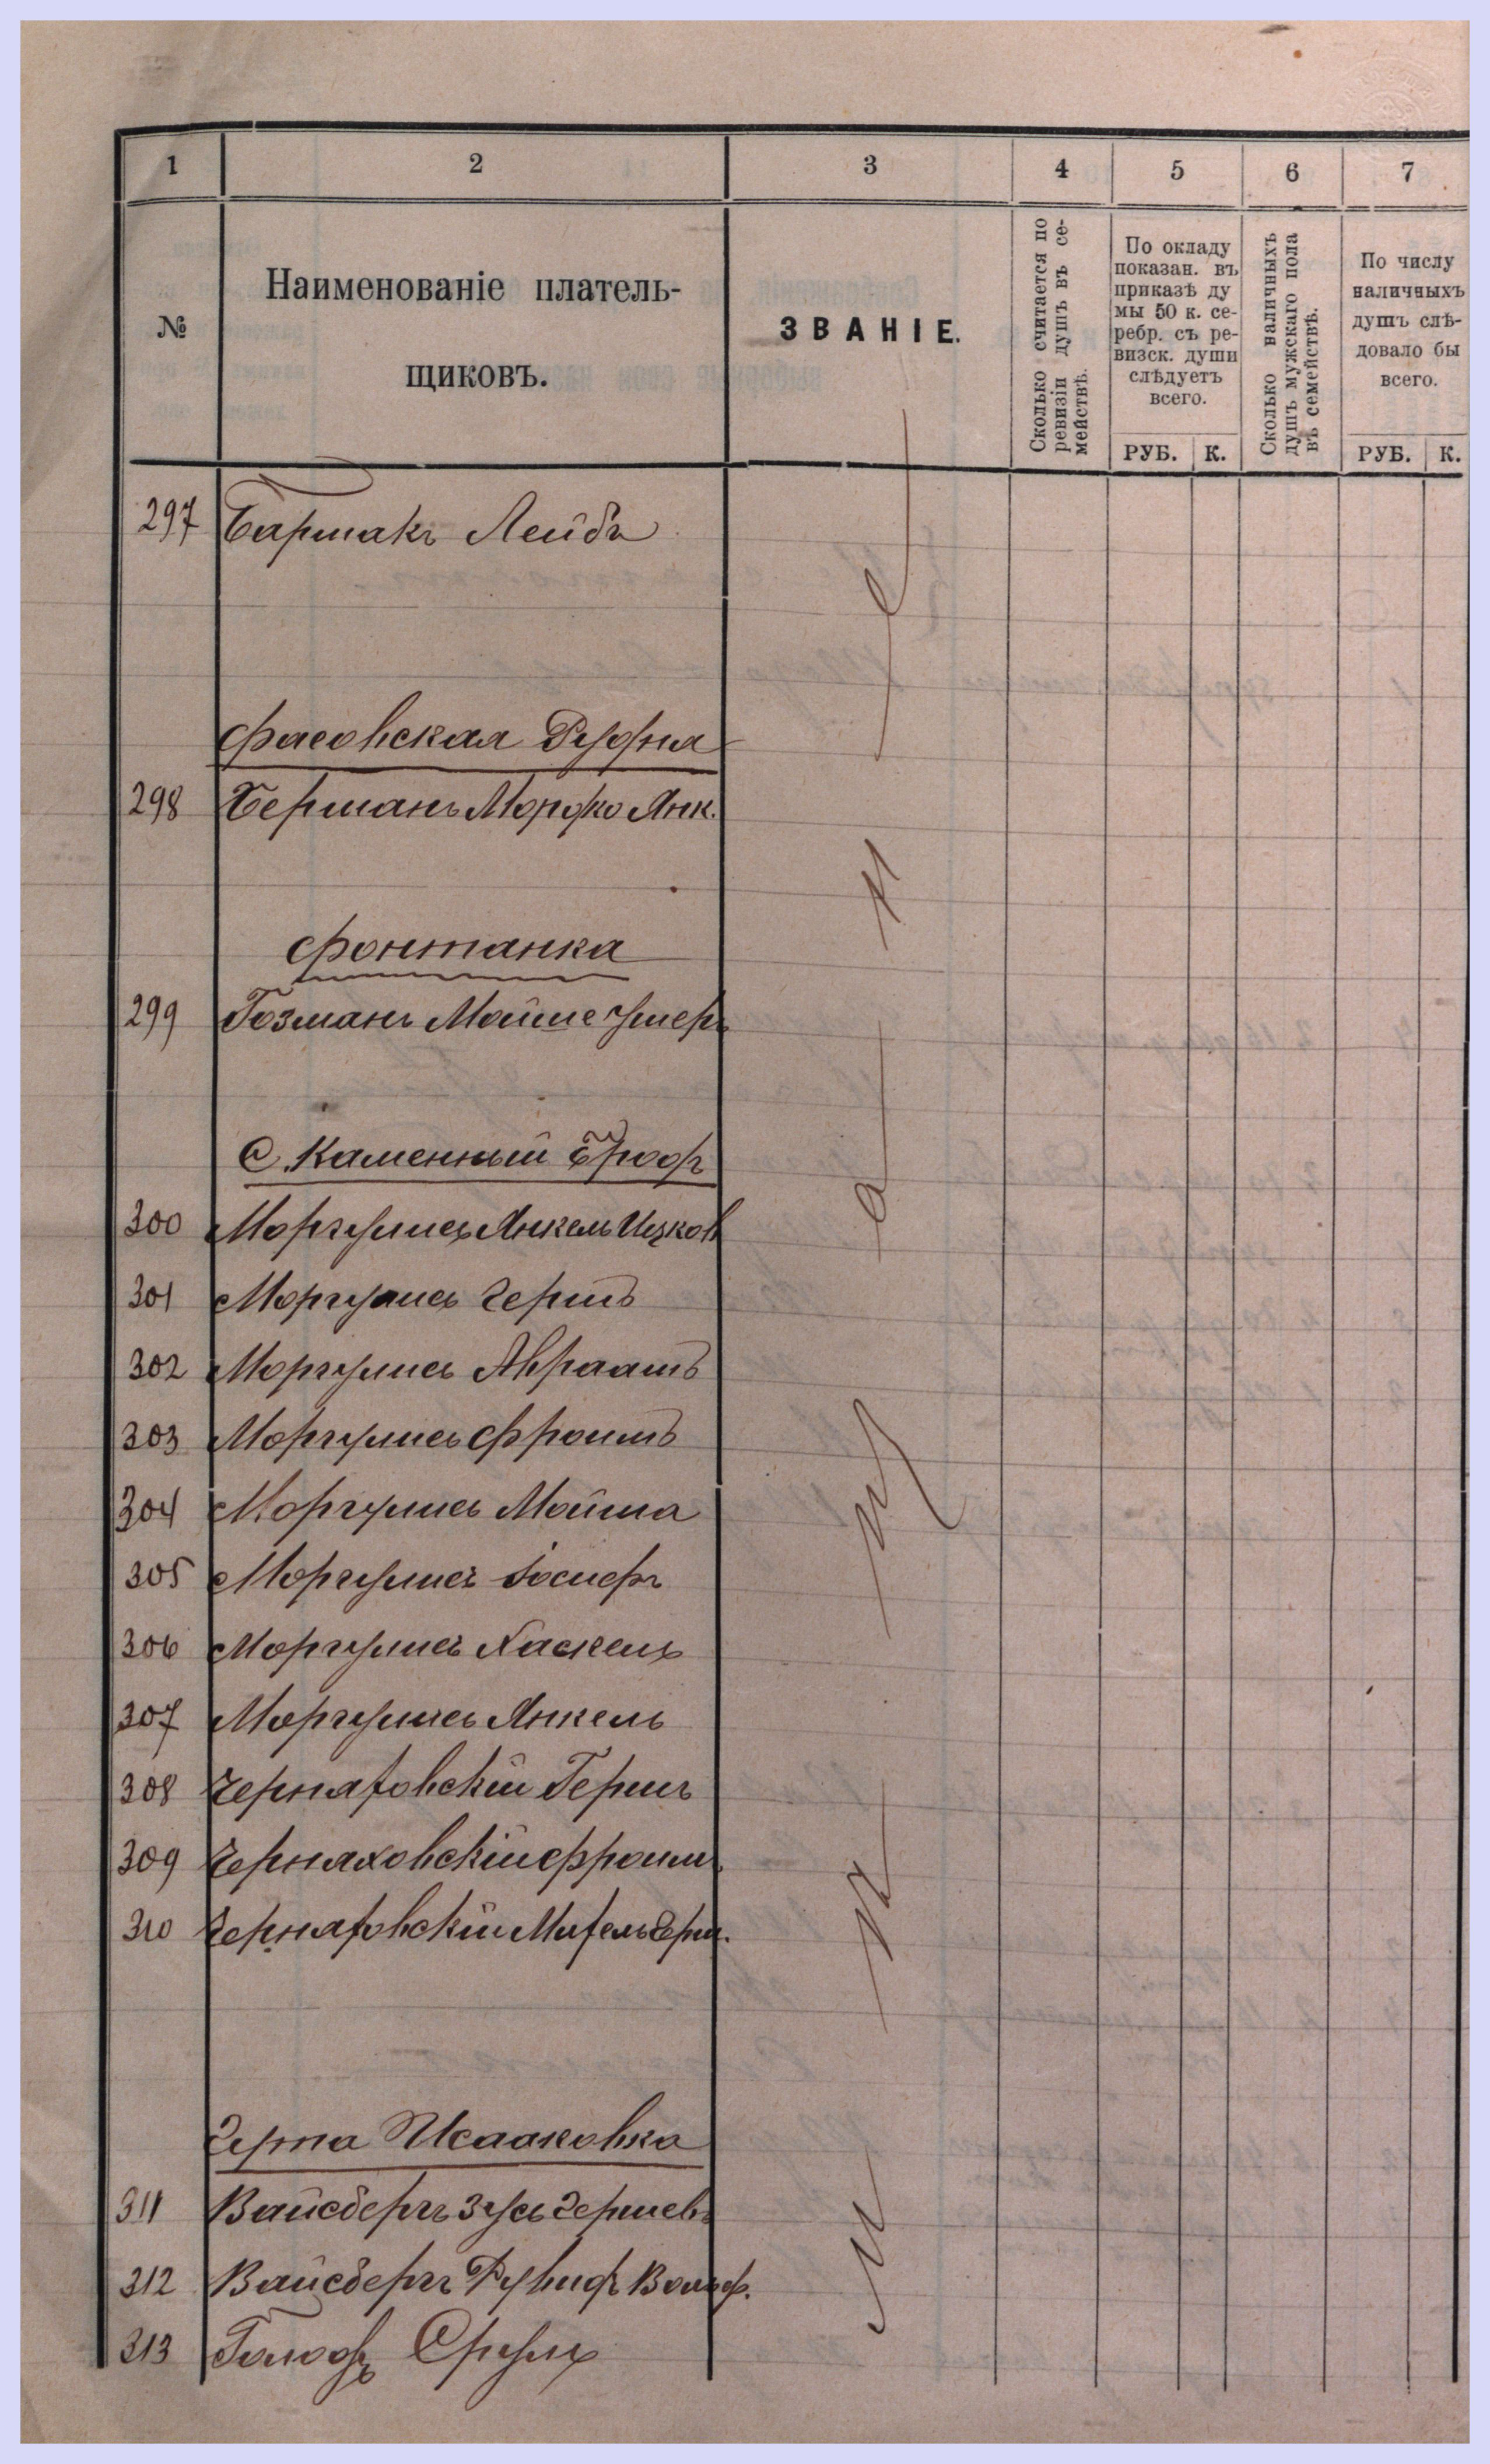 1 2 3 4 5 6 7
№
Наименованіе платель-
щиковъ.
ЗВАНІЕ.
Сколько считается по
ревизіи душъ въ се-
мействѣ.
По окладу
показан. въ
приказѣ ду
мы 50 к. се-
ребр. съ ре-
визск. души
слѣдуетъ
всего.
РУБ. К.
Сколько наличныхъ
душъ мужскаго пола
въ семействѣ.
По числу
наличныхъ
душъ слѣ-
довало бы
всего.
РУБ. К.
297 Бармакъ Лейба
Фасовская Рудня
298 Берманъ Мордко Янк.
Фонтанка
299 Гозманъ Мойше Умеръ
С. Каменный Бродъ
300 Моргулисъ Янкель Ицков
301 Моргулисъ Гершъ
302 Моргулисъ Авраамъ
303 Моргулисъ Фроимъ
304 Моргулисъ Мойша
305 Моргулисъ Іосифъ
306 Моргулисъ Хаскель
307 Моргулисъ Янкель
308 Черняховскій Гершъ
309 Черняховскій Фроимъ
310 Черняховскій Михель Герш.
Черта Исааковка
311 Вайсбергъ Зусь Гершевъ
312 Вайсбергъ Рувинъ Вольф.
313 Голодъ Сруль
М ѣ щ а н е